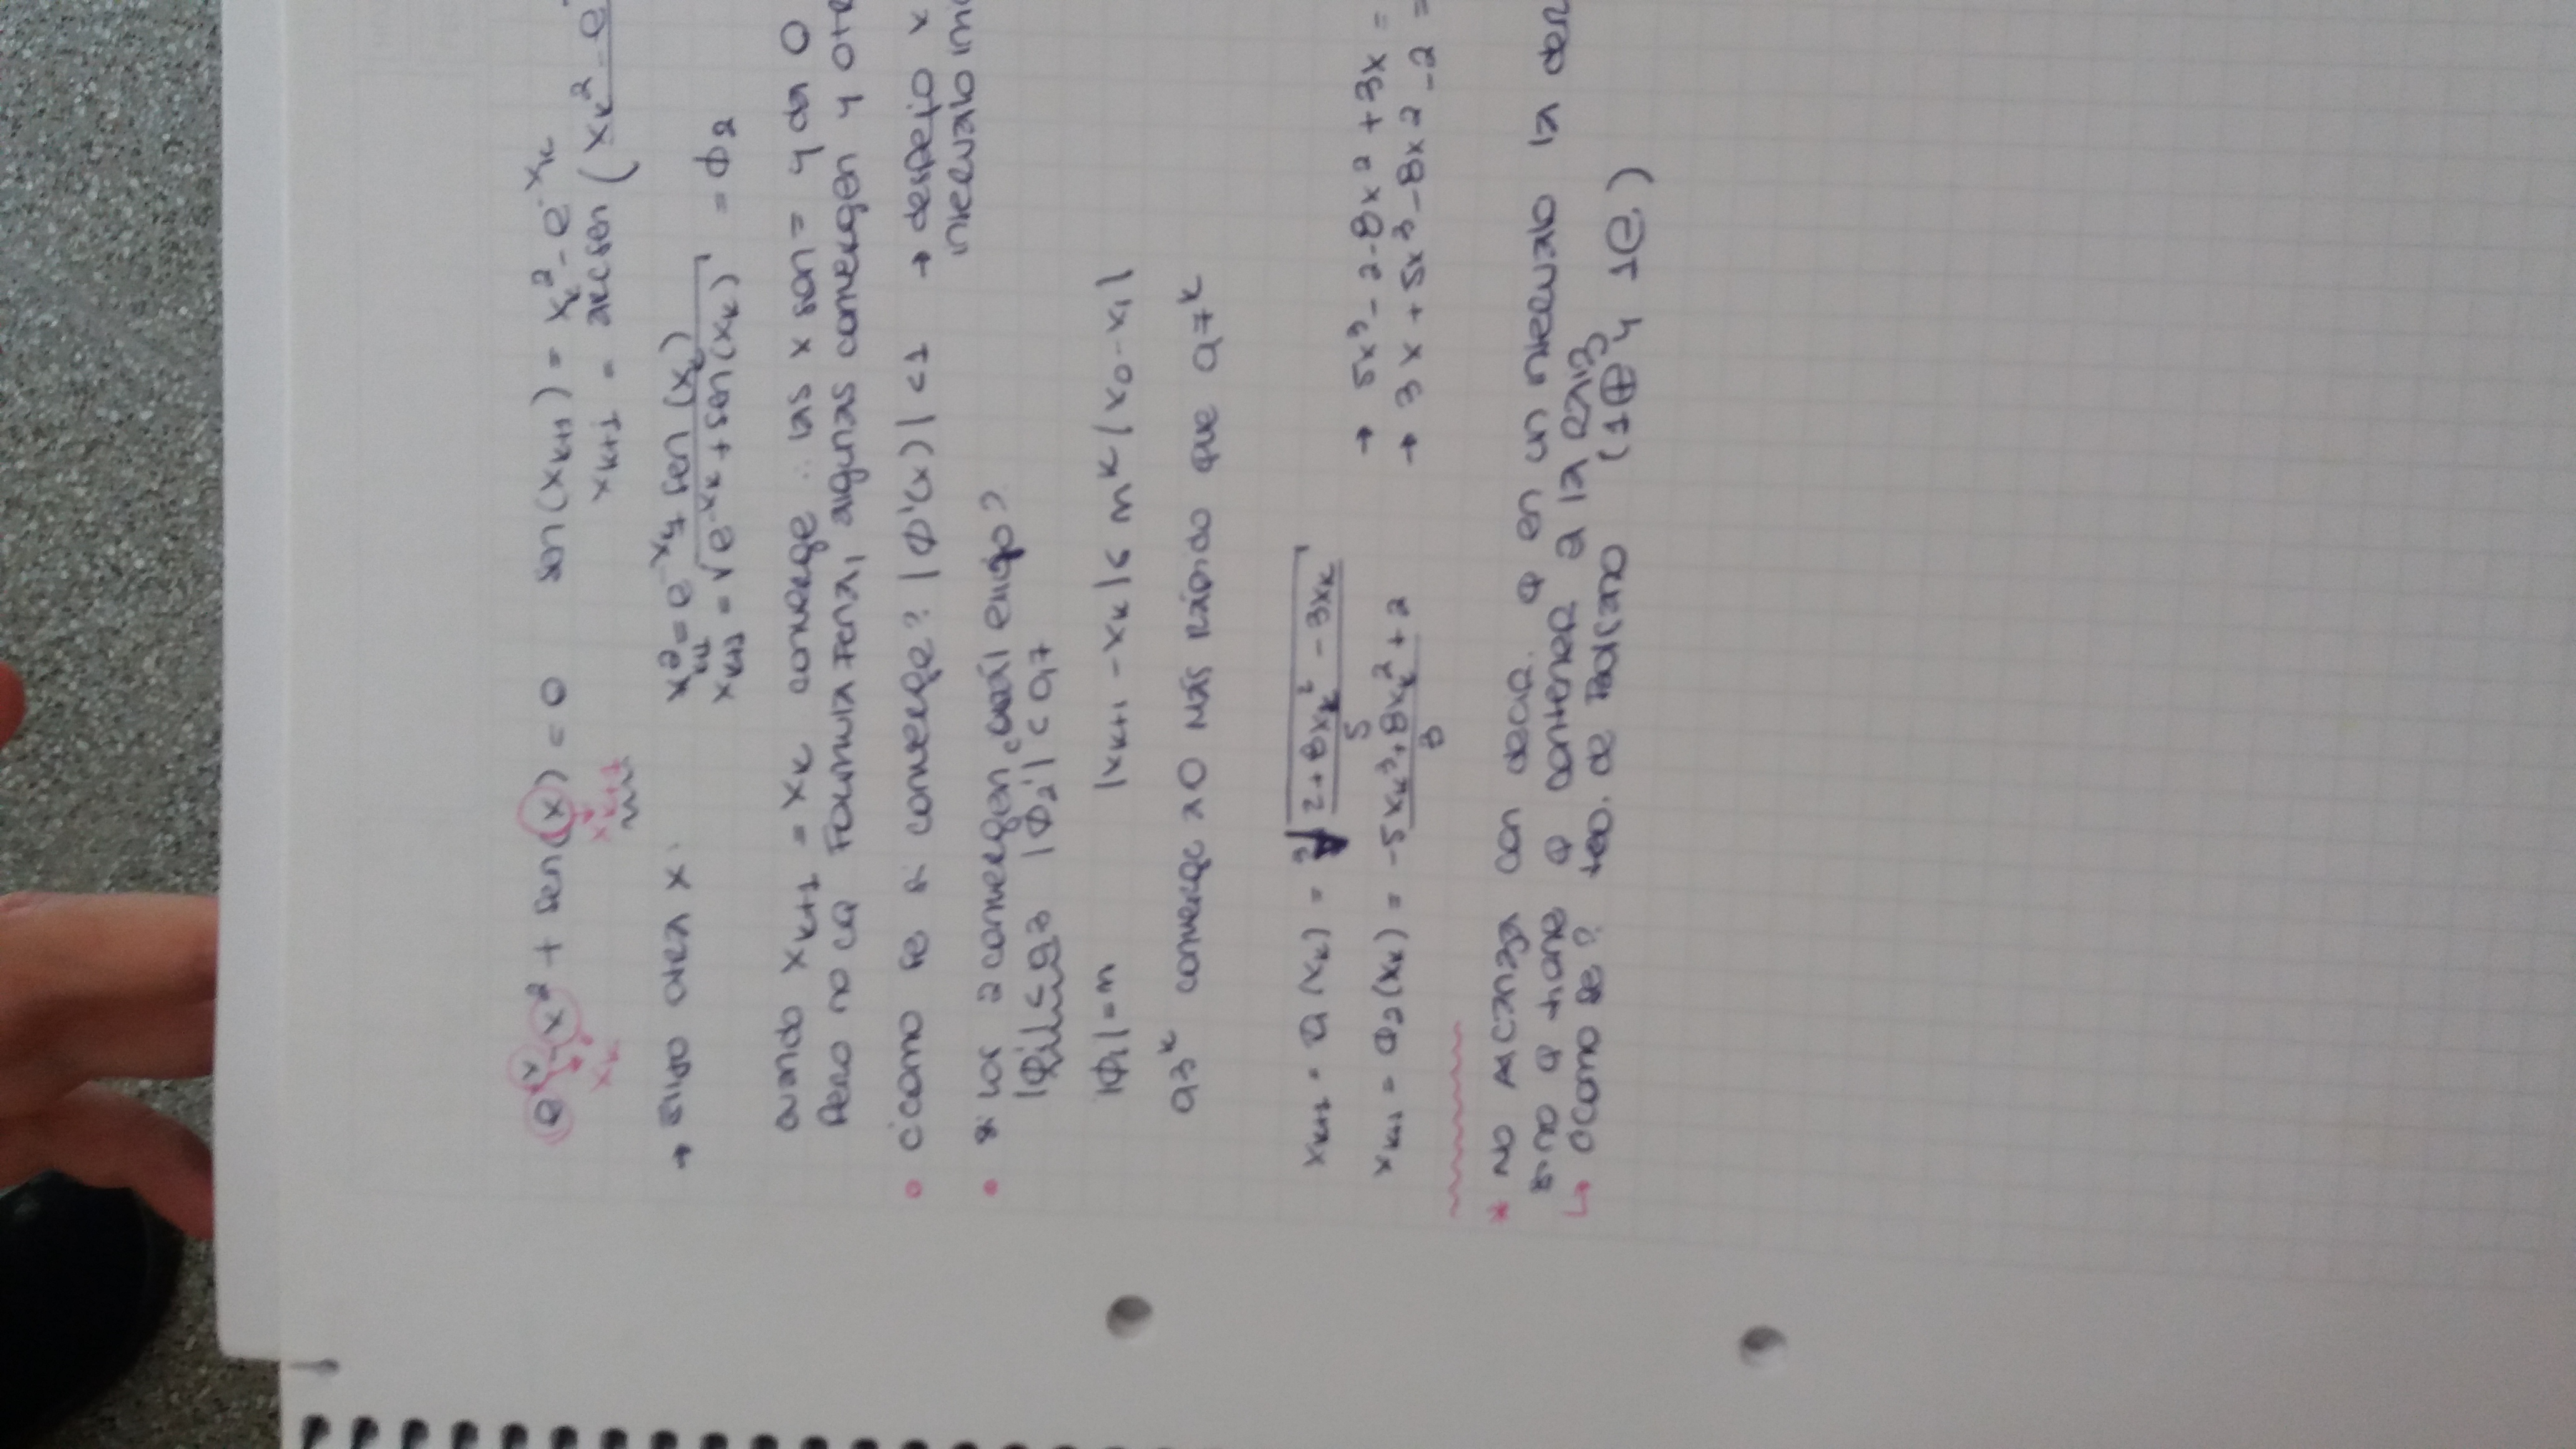 e^-x - x² + sen(x) = 0   sen(x_{k+1}) = x_k² - e^{-x_k}
x_k   x_{k+1}   x_{k+1} = arcsen (x_k² - e
→ elijo otra x:   x²_{k+1} = e^{-x_k} + sen (x_k)
x_{k+1} = √(e^{-x_k} + sen(x_k)) = φ2
cuando x_{k+1} = x_k converge ∴ las x son = y da 0
Pero no cq Formula Fena, algunas convergen y otr
• ¿como se si converge? |φ'(x)| < 1 → despejo x
intervalo in
• si los 2 convergen, cuál elijo?
|φ1'| < 0,3   |φ2'| < 0,7
|φ1| = m   |x_{k+1} - x_k| ≤ m^k |x0 - x1|
0,3^k converge a 0 más rápido que 0,7^k
x_{k+1} = φ1(x_k) = ³√((2 + 8x_k² - 3x_k)/5)
→ 5x³ - 2 - 8x² + 3x =
x_{k+1} = φ2(x_k) = (-5x_k³ + 8x_k² + 2)/3
→ 3x + 5x³ - 8x² - 2 =
* No Alcanza con decir q en un intervalo la der
sino q tiene q contener a la raiz
↳ ¿como se? teo. de Bolzano (1⊕ y 1⊖)